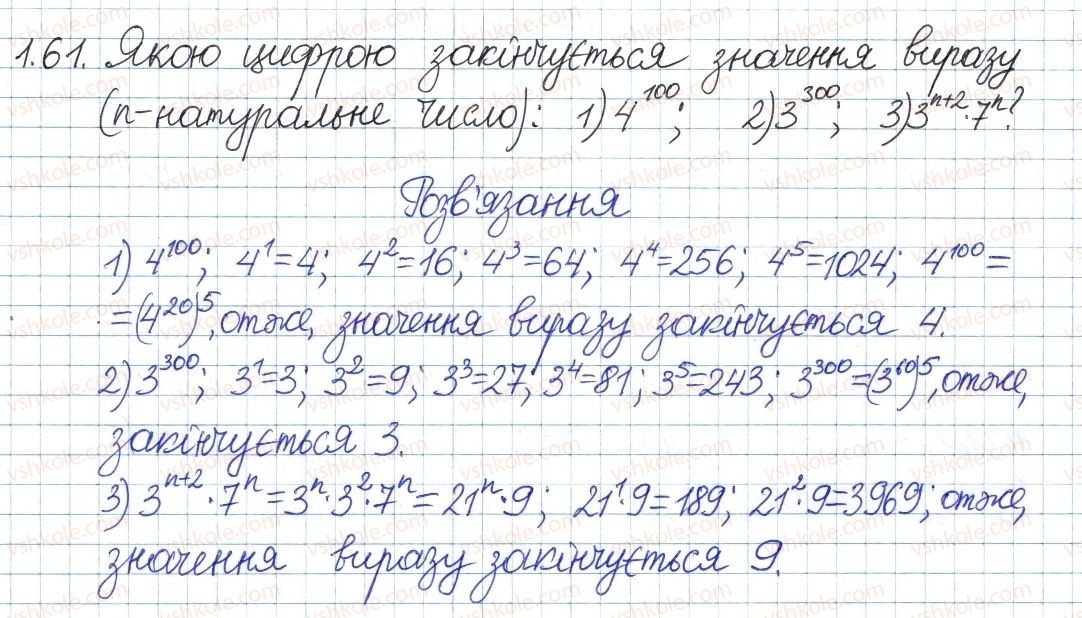 1.61. Якою цифрою закінчується значення виразу
(n-натуральне число): 1) 4^100; 2) 3^300; 3) 3^(n+2)·7^n?
Розв'язання
1) 4^100; 4^1=4; 4^2=16; 4^3=64; 4^4=256; 4^5=1024; 4^100=
=(4^20)^5, отже, значення виразу закінчується 4.
2) 3^300; 3^1=3; 3^2=9; 3^3=27; 3^4=81; 3^5=243; 3^300=(3^60)^5, отже,
закінчується 3.
3) 3^(n+2)·7^n=3^n·3^2·7^n=21^n·9; 21^1·9=189; 21^2·9=3969; отже,
значення виразу закінчується 9.